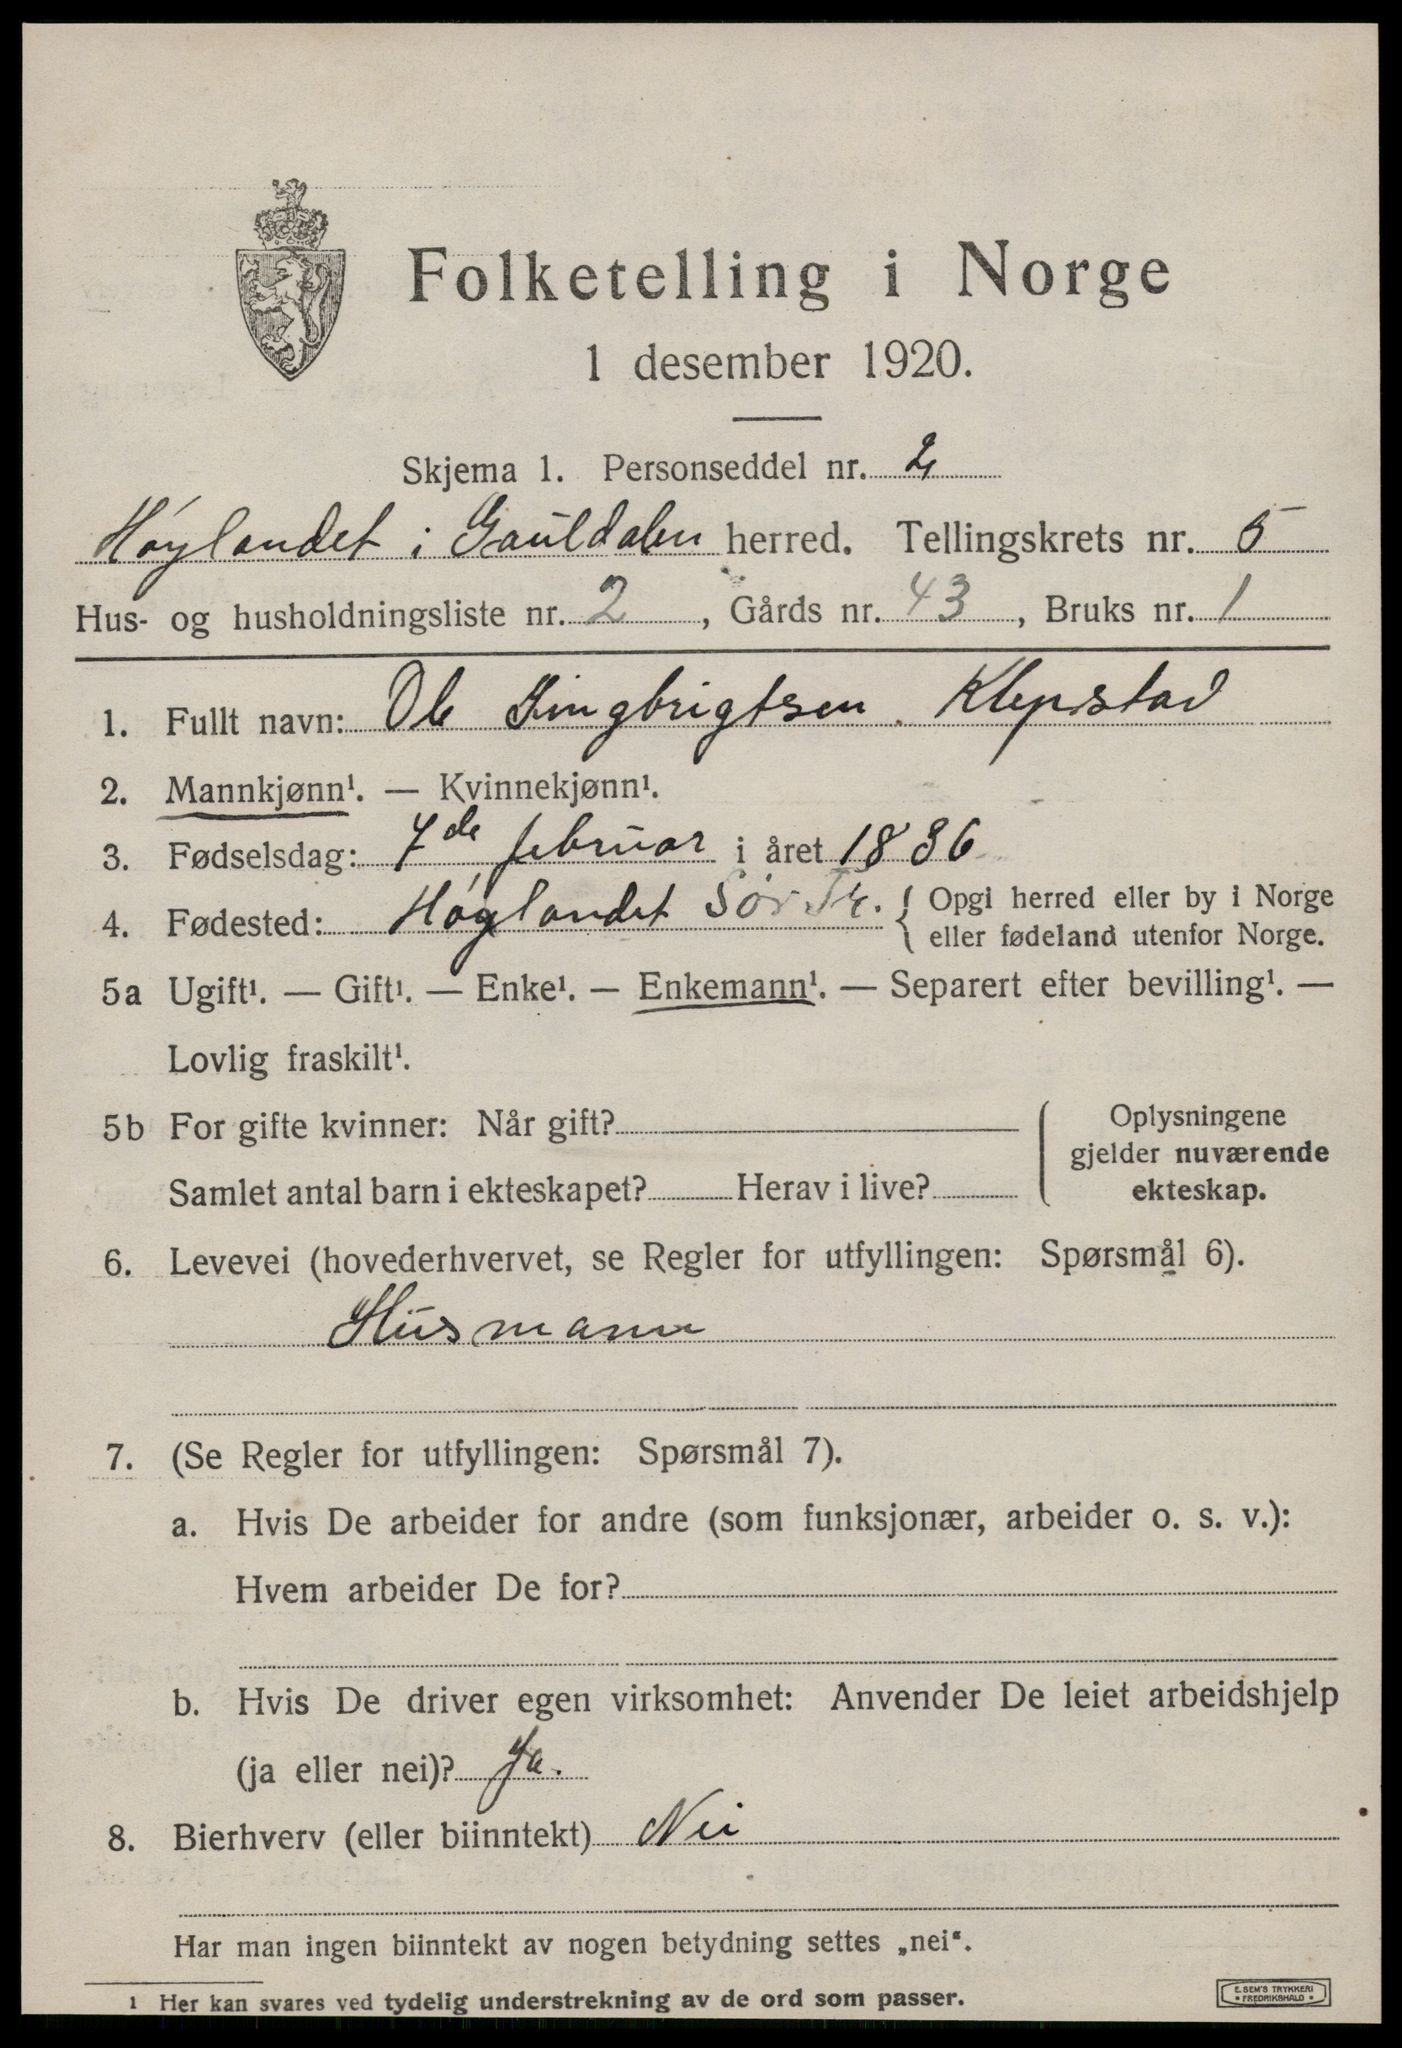 Folketelling i Norge
1 desember 1920.
Skjema 1. Personseddel nr. 2
Høylandet i Gauldalen herred. Tellingskrets nr. 5
Hus- og husholdningsliste nr. 2, Gårds nr. 43, Bruks nr. 1
1. Fullt navn: Ole Ingbrigtsen Klepstad
2. Mannkjønn¹. — Kvinnekjønn¹.
3. Fødselsdag: 7de februar i året 1836
4. Fødested: Høylandet Sør Tr. { Opgi herred eller by i Norge
eller fødeland utenfor Norge.
5a Ugift¹. — Gift¹. — Enke¹. — Enkemann¹. — Separert efter bevilling¹. —
Lovlig fraskilt¹.
5b For gifte kvinner: Når gift?
Samlet antal barn i ekteskapet? Herav i live?
Oplysningene
gjelder nuværende
ekteskap.
6. Levevei (hovederhvervet, se Regler for utfyllingen: Spørsmål 6).
Husmann
7. (Se Regler for utfyllingen: Spørsmål 7).
a. Hvis De arbeider for andre (som funksjonær, arbeider o. s. v.):
Hvem arbeider De for?
b. Hvis De driver egen virksomhet: Anvender De leiet arbeidshjelp
(ja eller nei)? Ja.
8. Bierhverv (eller biinntekt) Nei
Har man ingen biinntekt av nogen betydning settes „nei“.
1 Her kan svares ved tydelig understrekning av de ord som passer.
E. SEM'S TRYKKERI
• FREDRIKSHALD •